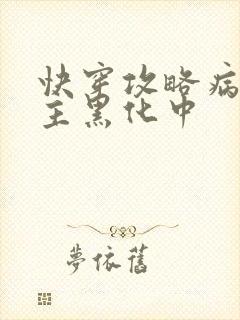 快穿攻略病
主黑化中
夢依舊